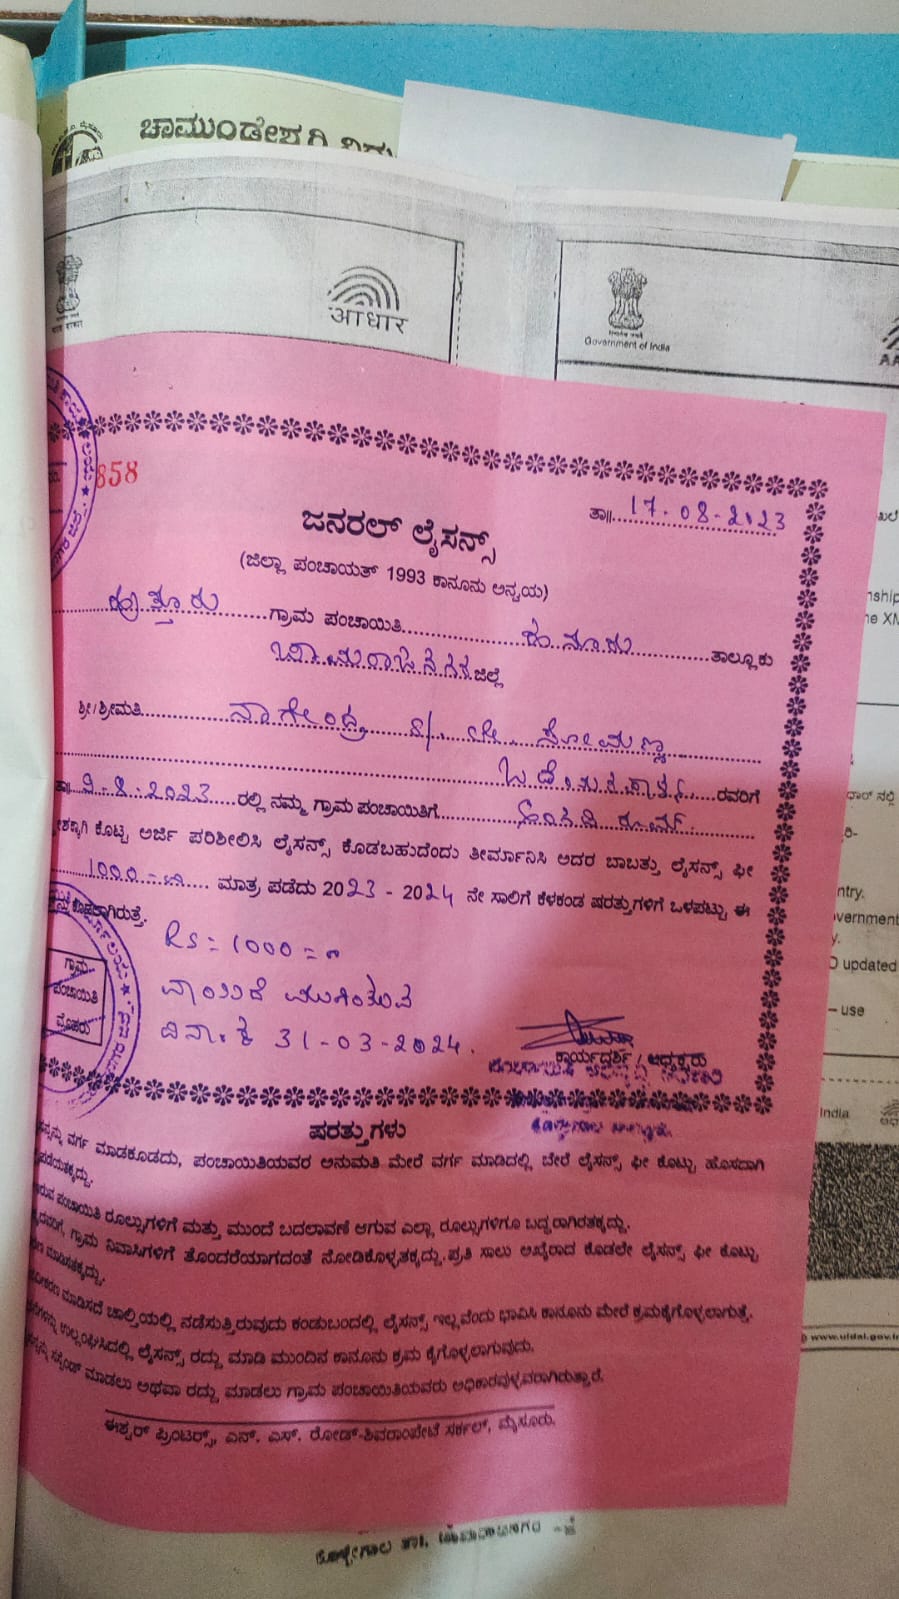 ಚಾಮುಂಡೇಶ್ವರಿ ವಿದ್ಯು
आधार
Government of India
AA
858
ತಾ॥ 17-08-2023
ಜನರಲ್ ಲೈಸನ್ಸ್
(ಜಿಲ್ಲಾ ಪಂಚಾಯತ್ 1993 ಕಾನೂನು ಅನ್ವಯ)
ಗ್ರಾಮ ಪಂಚಾಯಿತಿ ಹನೂರು ತಾಲ್ಲೂಕು
ಚಾಮರಾಜನಗರ ಜಿಲ್ಲೆ
ಶ್ರೀ/ಶ್ರೀಮತಿ ನಾಗೇಂದ್ರ s/. ಲೇ. ಸೋಮಣ್ಣ
ರವರಿಗೆ
ತಾ॥ 2023 ರಲ್ಲಿ ನಮ್ಮ ಗ್ರಾಮ ಪಂಚಾಯಿತಿಗೆ
ಕೊಟ್ಟ ಅರ್ಜಿ ಪರಿಶೀಲಿಸಿ ಲೈಸನ್ಸ್ ಕೊಡಬಹುದೆಂದು ತೀರ್ಮಾನಿಸಿ ಅದರ ಬಾಬತ್ತು ಲೈಸನ್ಸ್ ಫೀ
1000 ಮಾತ್ರ ಪಡೆದು 2023 - 2024 ನೇ ಸಾಲಿಗೆ ಕೆಳಕಂಡ ಷರತ್ತುಗಳಿಗೆ ಒಳಪಟ್ಟು ಈ
Rs = 1000 =
ವಾಯಿದೆ ಮುಗಿಯುವ
ದಿನಾಂಕ 31-03-2024.
ಗ್ರಾಮ
ಪಂಚಾಯಿತಿ
ಮೊಹರು
ಕಾರ್ಯದರ್ಶಿ / ಅಧ್ಯಕ್ಷರು
ಷರತ್ತುಗಳು
ವರ್ಗ ಮಾಡಕೂಡದು, ಪಂಚಾಯಿತಿಯವರ ಅನುಮತಿ ಮೇರೆ ವರ್ಗ ಮಾಡಿದಲ್ಲಿ ಬೇರೆ ಲೈಸನ್ಸ್ ಫೀ ಕೊಟ್ಟು ಹೊಸದಾಗಿ
ಪಡೆಯತಕ್ಕದ್ದು.
ಪಂಚಾಯಿತಿ ರೂಲ್ಸುಗಳಿಗೆ ಮತ್ತು ಮುಂದೆ ಬದಲಾವಣೆ ಆಗುವ ಎಲ್ಲಾ ರೂಲ್ಸುಗಳಿಗೂ ಬದ್ಧರಾಗಿರತಕ್ಕದ್ದು.
ಗ್ರಾಮ ನಿವಾಸಿಗಳಿಗೆ ತೊಂದರೆಯಾಗದಂತೆ ನೋಡಿಕೊಳ್ಳತಕ್ಕದ್ದು. ಪ್ರತಿ ಸಾಲು ಅಖೈರಾದ ಕೂಡಲೇ ಲೈಸನ್ಸ್ ಫೀ ಕೊಟ್ಟು
ಮಾಡಿಸತಕ್ಕದ್ದು.
ಮಾಡಿಸದೆ ಚಾಲ್ತಿಯಲ್ಲಿ ನಡೆಸುತ್ತಿರುವುದು ಕಂಡುಬಂದಲ್ಲಿ ಲೈಸನ್ಸ್ ಇಲ್ಲವೆಂದು ಭಾವಿಸಿ ಕಾನೂನು ಮೇರೆ ಕ್ರಮಕೈಗೊಳ್ಳಲಾಗುತ್ತೆ.
ಉಲ್ಲಂಘಿಸಿದಲ್ಲಿ ಲೈಸನ್ಸ್ ರದ್ದು ಮಾಡಿ ಮುಂದಿನ ಕಾನೂನು ಕ್ರಮ ಕೈಗೊಳ್ಳಲಾಗುವುದು.
ಸಸ್ಪೆಂಡ್ ಮಾಡಲು ಅಥವಾ ರದ್ದು ಮಾಡಲು ಗ್ರಾಮ ಪಂಚಾಯಿತಿಯವರು ಅಧಿಕಾರವುಳ್ಳವರಾಗಿರುತ್ತಾರೆ.
ಈಶ್ವರ್ ಪ್ರಿಂಟರ್ಸ್, ಎನ್. ಎಸ್. ರೋಡ್-ಶಿವರಾಂಪೇಟೆ ಸರ್ಕಲ್, ಮೈಸೂರು.
ಕೊಳ್ಳೇಗಾಲ ತಾ. ಚಾಮರಾಜನಗರ -ಜಿ
nship
e XM
ntry.
vernment
y.
updated
– use
India
www.uidai.gov.in